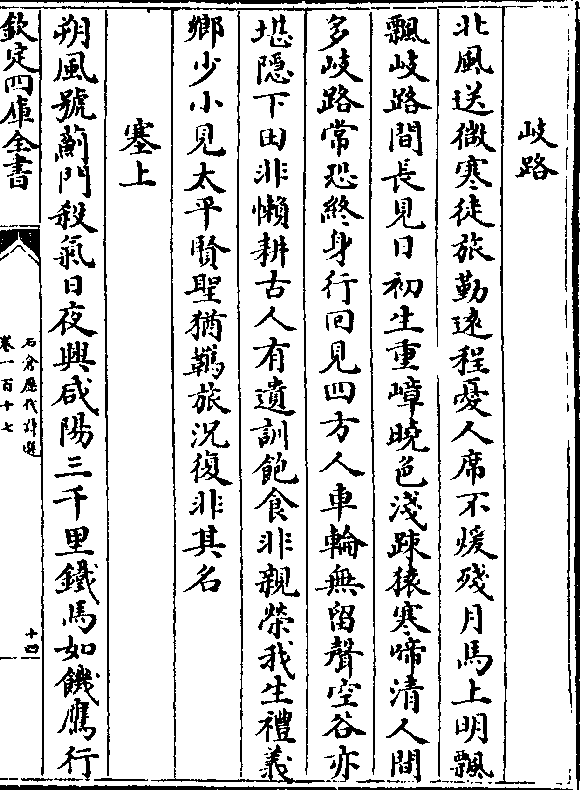 岐路
北風送微寒徒旅勤遠程憂人席不煖殘月馬上明飄
飄岐路間長見日初生重嶂曉色淺踈猿寒啼清人間
多岐路常恐終身行回見四方人車輪無留聲空谷亦
堪隱下田非懶耕古人有遺訓飽食非親榮我生禮義
鄉少小見太平賢聖猶羈旅況復非其名
塞上
朔風號薊門殺氣日夜興咸陽三千里鐵馬如饑鷹行
欽定四庫全書
石倉歷代詩選
卷一百十七
十四